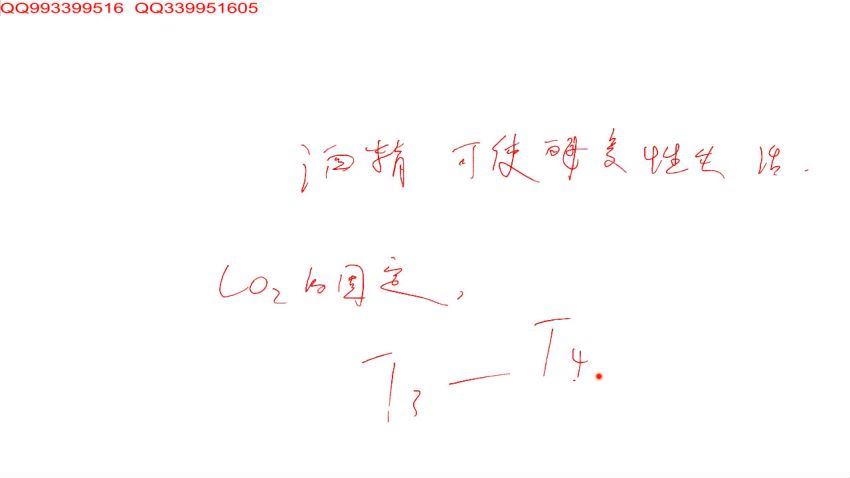 QQ993399516 QQ339951605
酒精 可使酶变性失活.
CO₂的固定,
T₃ — T₄.